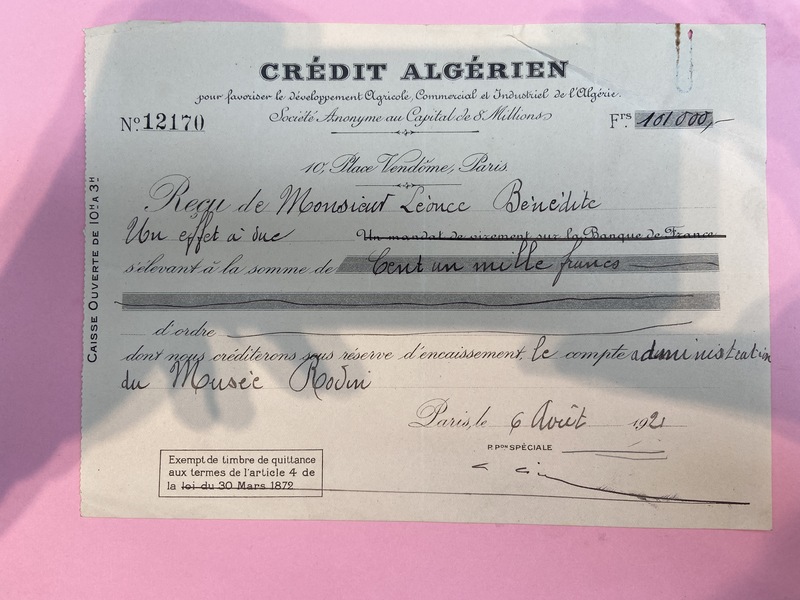 CRÉDIT ALGÉRIEN
pour favoriser le développement Agricole, Commercial et Industriel de l'Algérie.
Société Anonyme au Capital de 8 Millions
No. 12170
Frs. 101 000,-
10, Place Vendôme, Paris.
Reçu de Monsieur Léonce Bénédite
Un effet à vue Un mandat de virement sur la Banque de France
s'élevant à la somme de Cent un mille francs
d'ordre
dont nous créditerons sous réserve d'encaissement, le compte administration
du Musée Rodin
Paris, le 6 Août 1921
P. PON SPÉCIALE
Exempt de timbre de quittance
aux termes de l'article 4 de
la loi du 30 Mars 1872
CAISSE OUVERTE DE 10H A 3H